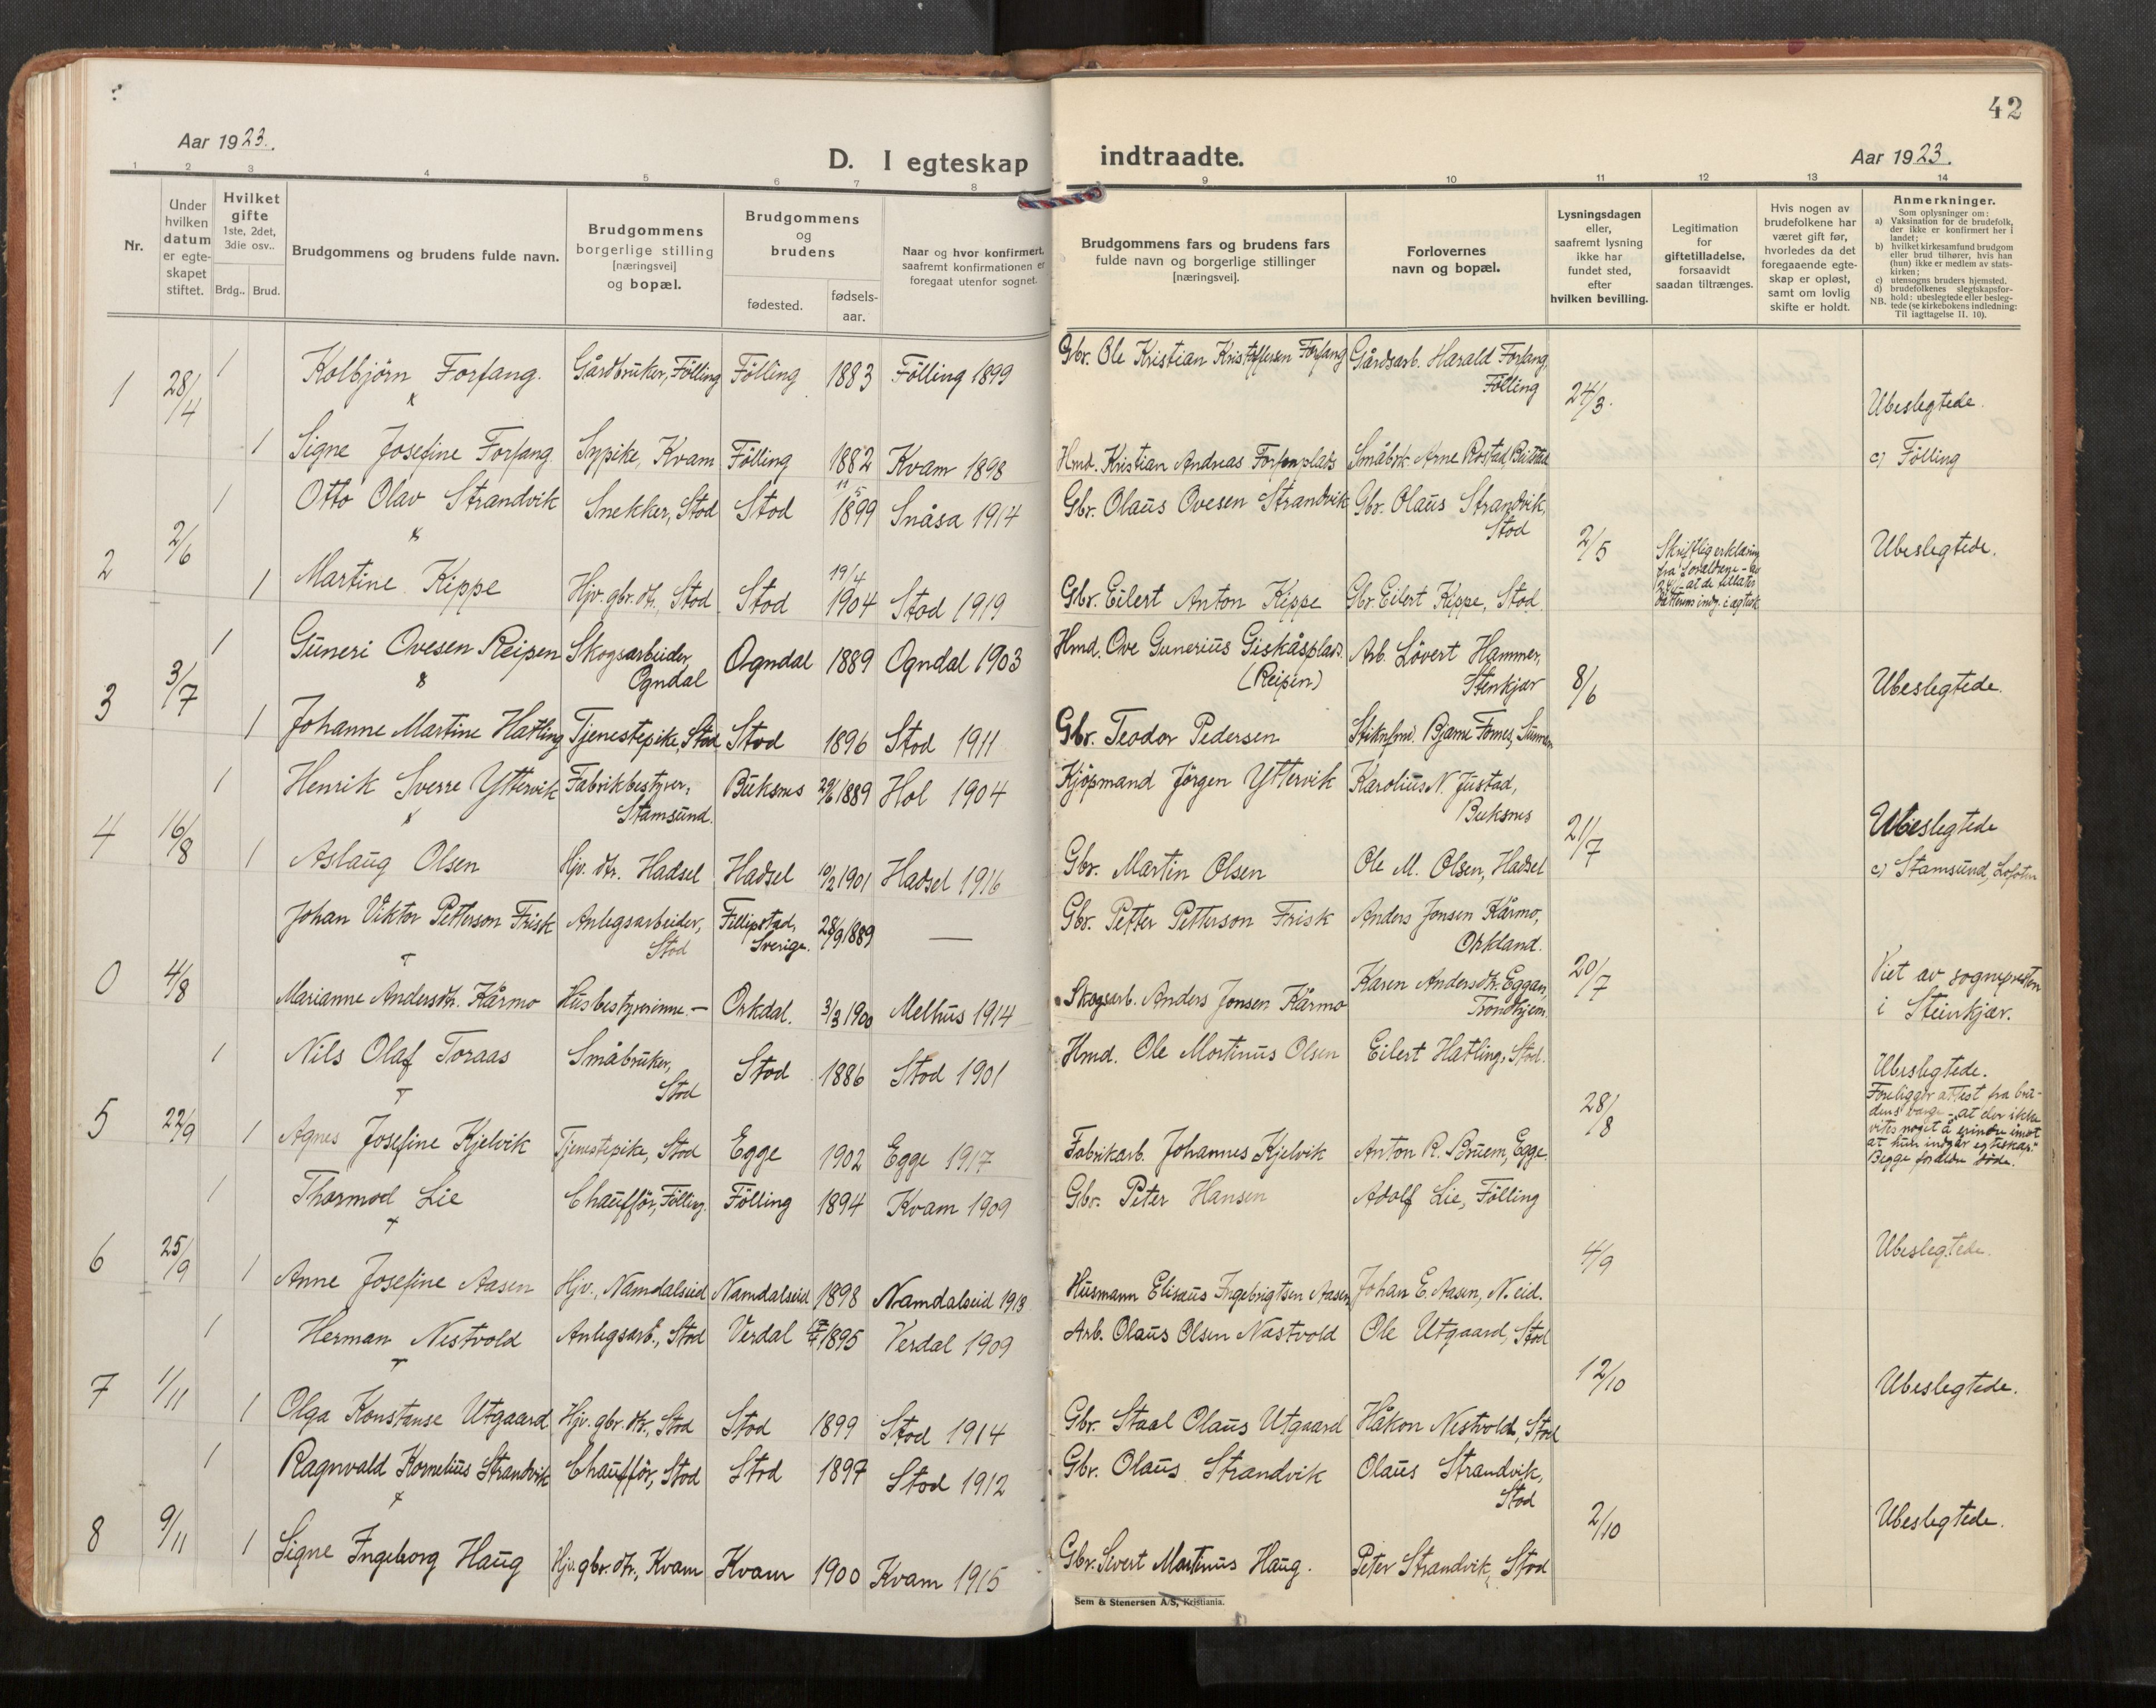 42
Aar 1923.
D. I egteskap indtraadte.
Aar 1923.
1 2 3 4 5 6 7 8 9 10 11 12 13 14
Nr.
Under hvilken datum er egteskapet stiftet.
Hvilket gifte 1ste, 2det, 3die osv..
Brdg.. Brud.
Brudgommens og brudens fulde navn.
Brudgommens borgerlige stilling [næringsvei] og bopæl.
Brudgommens og brudens
fødested.
fødsels-aar.
Naar og hvor konfirmert, saafremt konfirmationen er foregaat utenfor sognet.
Brudgommens fars og brudens fars fulde navn og borgerlige stillinger [næringsvei].
Forlovernes navn og bopæl.
Lysningsdagen eller, saafremt lysning ikke har fundet sted, efter hvilken bevilling.
Legitimation for giftetilladelse, forsaavidt saadan tiltrænges.
Hvis nogen av brudefolkene har været gift før, hvorledes da det foregaaende egteskap er opløst, samt om lovlig skifte er holdt.
Anmerkninger.
Som oplysninger om:
a) Vaksination for de brudefolk, der ikke er konfirmert her i landet;
b) hvilket kirkesamfund brudgom eller brud tilhører, hvis han (hun) ikke er medlem av statskirken;
c) utensogns bruders hjemsted.
d) brudefolkenes slegtskapsforhold: ubeslegtede eller beslegtede (se kirkebokens indledning: Til iagttagelse II. 10).
NB.
1 28/4 1 Kolbjörn Forfang. Gårdbruker, Fölling Fölling 1883 Fölling 1899 Gbr. Ole Kristian Kristoffersen Forfang Gårdsarb. Harald Forfang, Fölling 24/3. Ubeslegtede.
1 Signe Josefine Forfang Sypike, Kvam Fölling 1882 Kvam 1898 Hmd. Kristian Andreas Småbrk. Arne Rostad, Beitstad c) Fölling
2 2/6 1 Otto Olav Strandvik Snekker, Stod Stod 11/5 1899 Snåsa 1914 Gbr. Olaus Ovesen Strandvik Gbr. Olaus Strandvik, Stod 2/5 Ubeslegtede.
1 Martine Kippe Hjv. gbr. dtr., Stod Stod 19/4 1904 Stod 1919 Gbr. Eilert Anton Kippe Gbr. Eilert Kippe, Stod. Skriftlig erklæring fra at de tillater
3 3/7 1 Guneri Ovesen Reipen Skogsarbeider, Ogndal Ogndal 1889 Ogndal 1903 Hmd. Ove Gunerius Giskåsplads. (Reipen) Arb. Lövert Hammer, Stenkjær 8/6 Ubeslegtede.
1 Johanne Martine Hatling Tjenestepike, Stod Stod 1896 Stod 1911 Gbr. Teodor Pedersen Bjarne
4 16/8 1 Henrik Sverre Yttervik Fabrikbestyrer, Stamsund. Buksnes 29/6 1889 Hol 1904 Kjöpmand Jörgen Yttervik Karolius N. Justad, Buksnes 21/7 Ubeslegtede
1 Aslaug Olsen Hjv. dtr. Hadsel Hadsel 10/2 1901 Hadsel 1916 Gbr. Martin Olsen Ole M. Olsen, Hadsel c) Stamsund, Lofoten
0 4/8 Johan Viktor Petterson Frisk Anlegsarbeider, Stod Fillipstad, Sverige. 28/9 1889 — Gbr. Petter Petterson Frisk Anders Jonsen Kårmo, Orkland. 20/7 Viet av sogneprsten i Steinkjær.
Marianne Andersdtr. Kårmo Husbestyrerinne. — Orkdal. 3/3 1900 Melhus 1914 Skogsarb. Anders Jonsen Kårmo Karen Andersdtr. Eggan, Trondhjem.
5 22/9 1 Nils Olaf Toraas Småbruker, Stod Stod 1886 Stod 1901 Hmd. Ole Mortinus Olsen Eilert Hatling, Stod. 28/8 Ubeslegtede.
1 Agnes Josefine Kjelvik Tjenestepike, Stod Egge 1902 Egge 1917 Fabrikarb. Johannes Kjelvik Anton R. Bruem, Egge. Foreligger attest fra brudens verge - at der ikke vites noget å erindre imot at hun indgår egteskap." Begge foreldre döde.
6 25/9 1 Thormod Lie Chaufför, Fölling. Fölling 1894 Kvam 1909 Gbr. Peter Hansen Adolf Lie, Fölling 4/9 Ubeslegtede.
1 Anne Josefine Aasen Hjv., Namdalseid Namdalseid 1898 Namdalseid 1913 Husmann Elisæus Ingebrigtsen Aasen Johan E. Aasen, N. eid.
7 1/11 1 Herman Nestvold Anlegsarb., Stod Verdal 1895 Verdal 1909 Arb. Olaus Olsen Nastvold Ole Utgaard, Stod 12/10 Ubeslegtede.
1 Olga Konstanse Utgaard Hjv. gbr. dtr., Stod Stod 1899 Stod 1914 Gbr. Staal Olaus Utgaard Håkon Nestvold, Stod
8 9/11 1 Ragnvald Kornelius Strandvik Chaufför, Stod Stod 1897 Stod 1912 Gbr. Olaus Strandvik Olaus Strandvik, Stod 2/10 Ubeslegtede.
1 Signe Ingeborg Haug Hjv. gbr. dtr., Kvam Kvam 1900 Kvam 1915 Gbr. Sivert Martinus Haug. Peter Strandvik, Stod
Sem & Stenersen A/S, Kristiania.